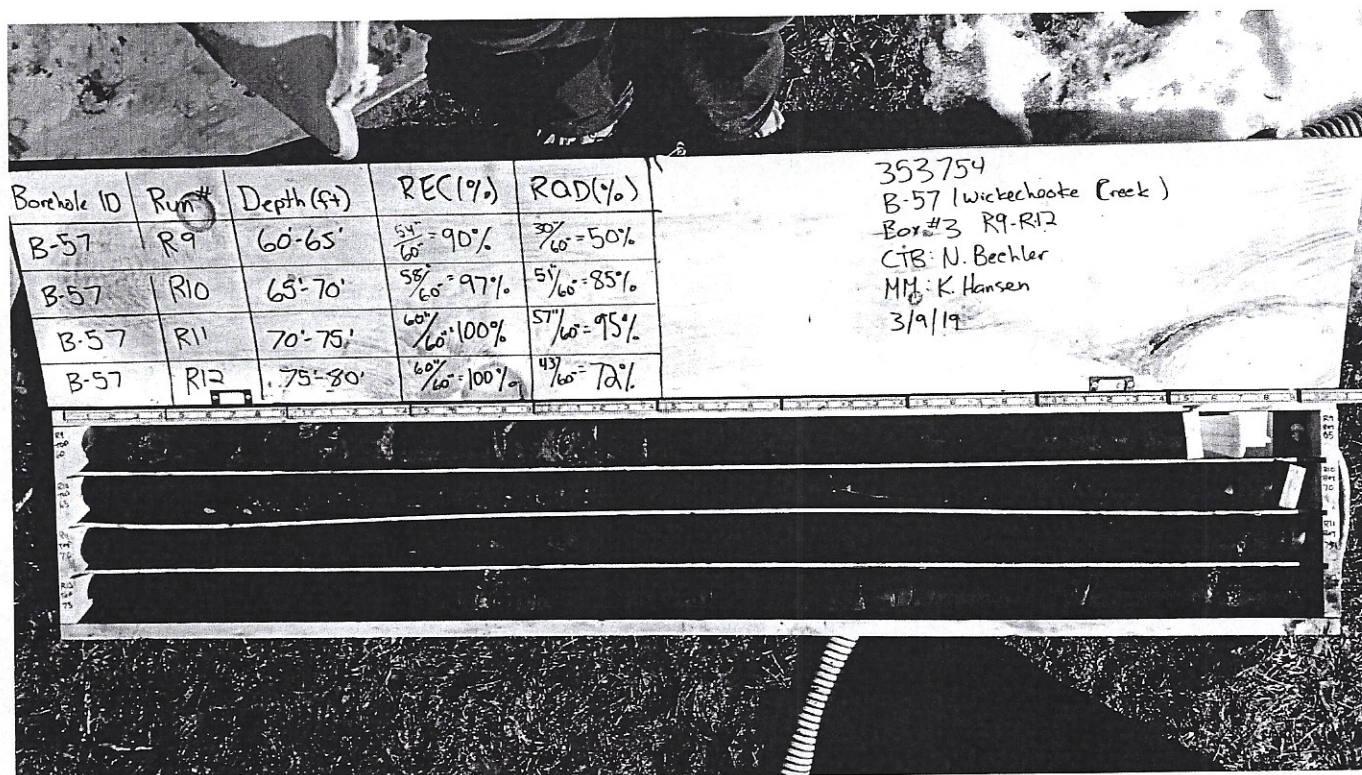 Borehole ID Run# Depth (ft) REC(%) RQD(%)
B-57 R9 60'-65' 54"/60" = 90% 30"/60" = 50%
B-57 R10 65'-70' 58"/60" = 97% 51"/60" = 85%
B-57 R11 70'-75' 60"/60" = 100% 57"/60" = 95%
B-57 R12 75'-80' 60"/60" = 100% 43"/60" = 72%
353754
B-57 (Wickechooke Creek)
Box #3 R9-R12
CTB: N. Bechler
MM: K. Hansen
3/9/19